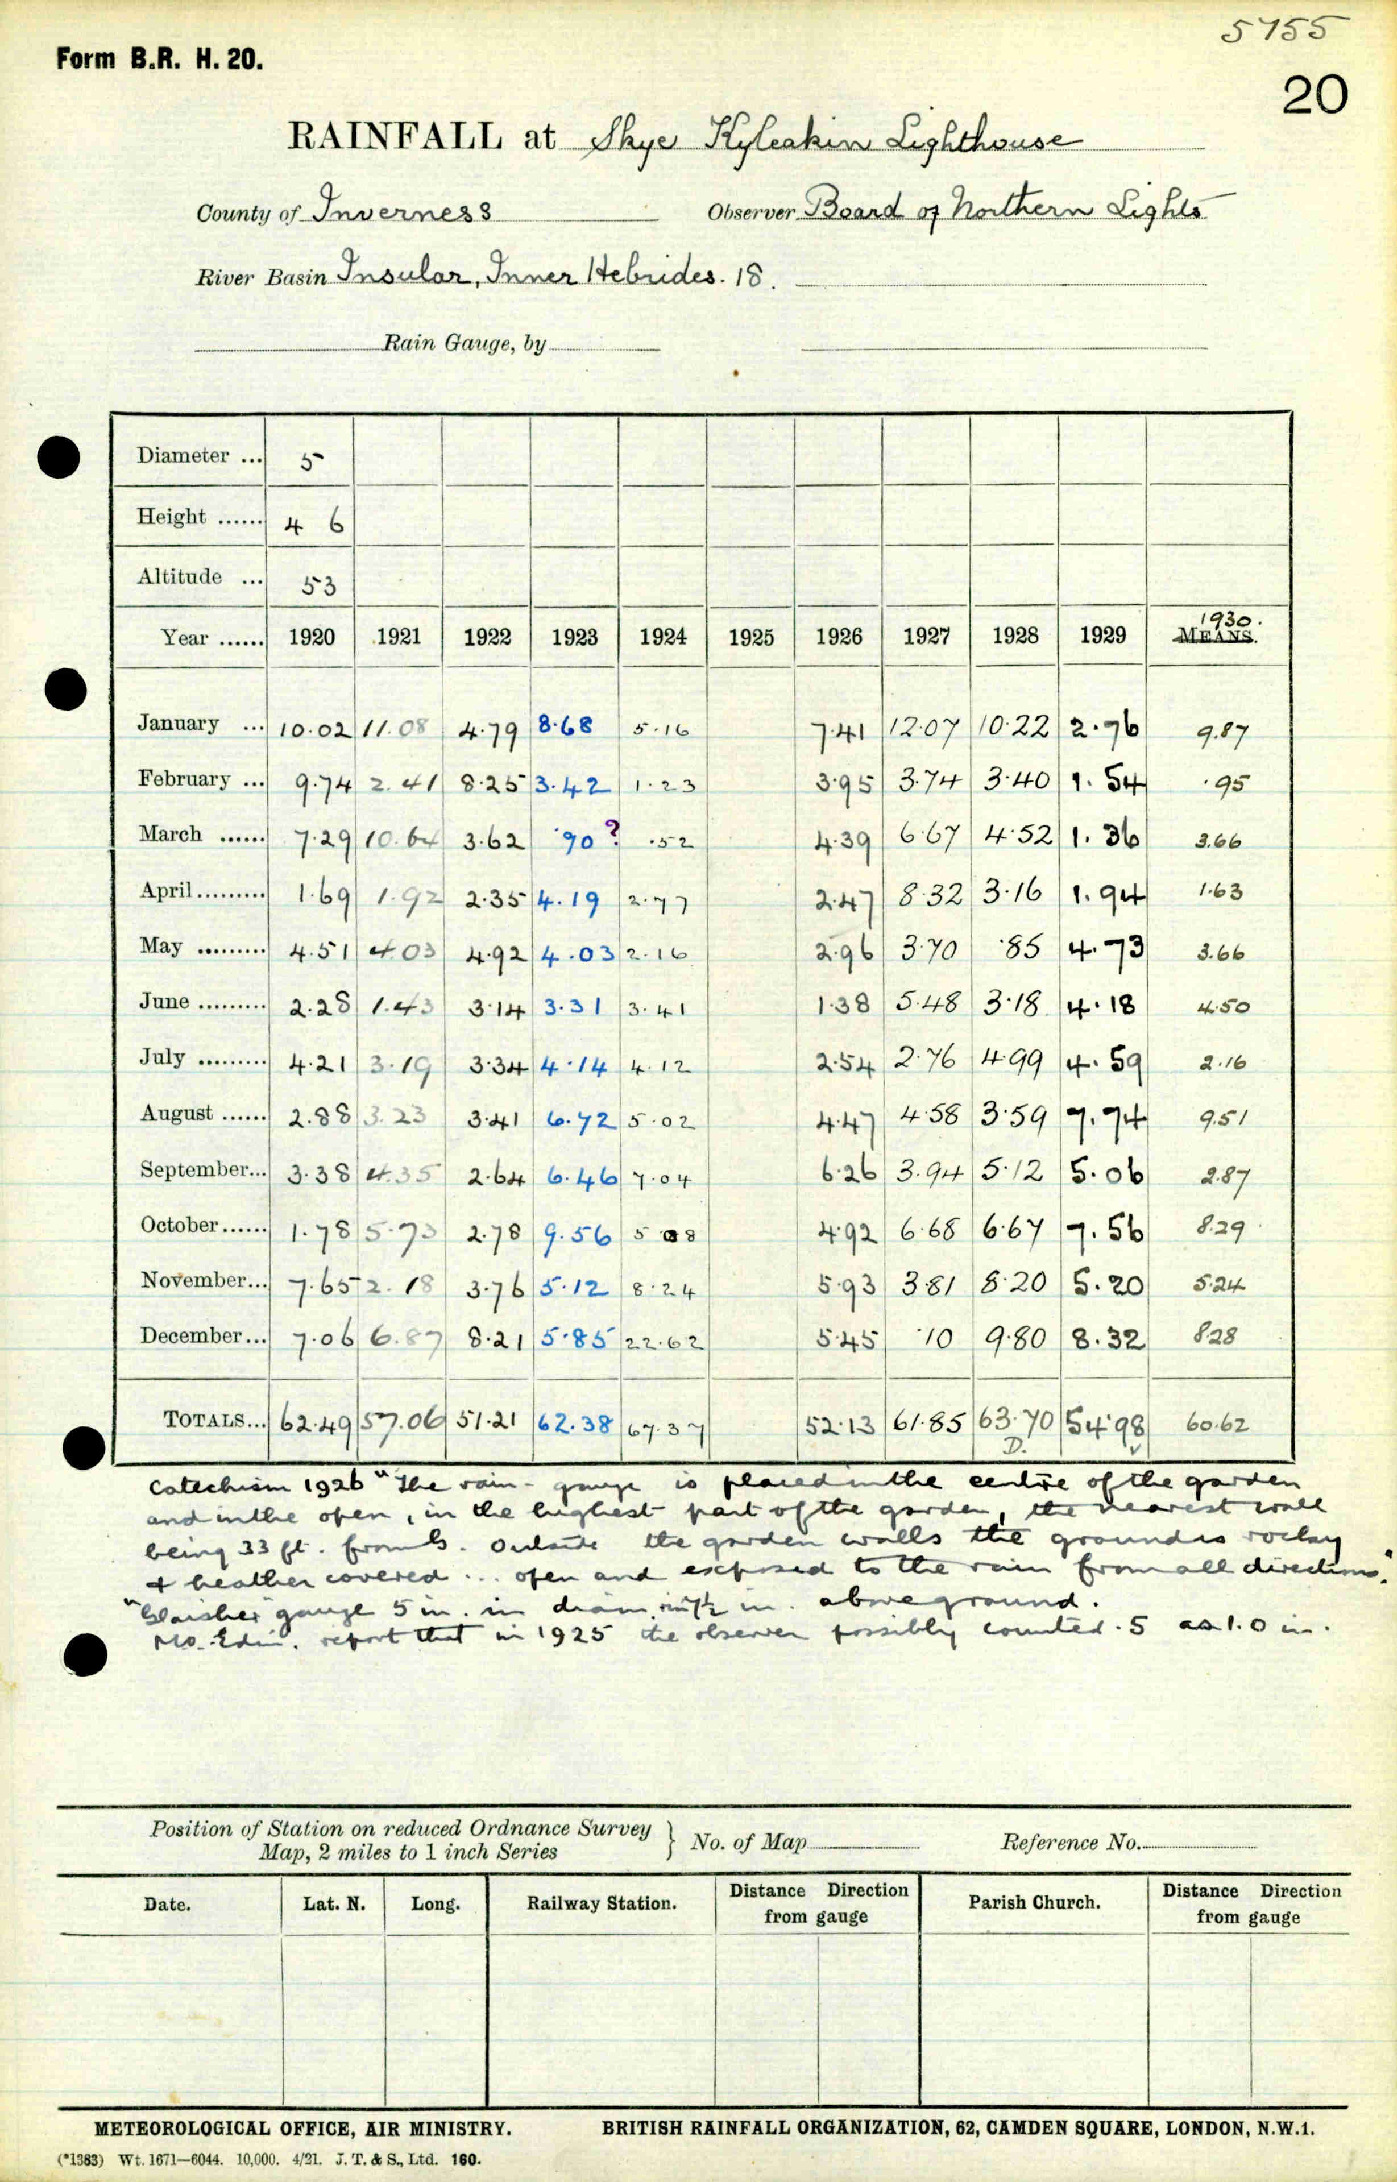 5755
Form B.R. H. 20.
20
RAINFALL at Skye Kyleakin Lighthouse
County of Inverness Observer Board of Northern Lights
River Basin Insular, Inner Hebrides. 18.
Rain Gauge, by
Diameter ... 5
Height ...... 4 6
Altitude ... 53
Year ...... 1920 1921 1922 1923 1924 1925 1926 1927 1928 1929 1930. MEANS.
January ... 10.02 11.08 4.79 8.68 5.16 7.41 12.07 10.22 2.76 9.87
February ... 9.74 2.41 8.25 3.42 1.23 3.95 3.74 3.40 1.54 .95
March ...... 7.29 10.64 3.62 .90? .52 4.39 6.67 4.52 1.36 3.66
April......... 1.69 1.92 2.35 4.19 2.77 2.47 8.32 3.16 1.94 1.63
May ......... 4.51 4.03 4.92 4.03 2.16 2.96 3.70 .85 4.73 3.66
June ......... 2.28 1.43 3.14 3.31 3.41 1.38 5.48 3.18 4.18 4.50
July ......... 4.21 3.19 3.34 4.14 4.12 2.54 2.76 4.99 4.59 2.16
August ...... 2.88 3.23 3.41 6.72 5.02 4.47 4.58 3.59 7.74 9.51
September... 3.38 4.35 2.64 6.46 7.04 6.26 3.94 5.12 5.06 2.87
October...... 1.78 5.73 2.78 9.56 5.08 4.92 6.68 6.67 7.56 8.29
November... 7.65 2.18 3.76 5.12 8.24 5.93 3.81 8.20 5.20 5.24
December... 7.06 6.87 8.21 5.85 22.62 5.45 .10 9.80 8.32 8.28
TOTALS... 62.49 57.06 51.21 62.38 67.37 52.13 61.85 63.70 54.98 60.62
D. v
Catechism 1926 "The rain-gauge is placed in the centre of the garden
and in the open, in the highest part of the garden, the nearest wall
being 33 ft. from G. Outside the garden walls the ground is rocky
& heather covered ... open and exposed to the rain from all directions."
"Glaisher gauge 5 in. in diam. in. above ground.
Mo. Edin. report that in 1925 the observer possibly counted .5 as 1.0 in.
Position of Station on reduced Ordnance Survey Map, 2 miles to 1 inch Series } No. of Map Reference No.
Date. Lat. N. Long. Railway Station. Distance Direction from gauge Parish Church. Distance Direction from gauge
METEOROLOGICAL OFFICE, AIR MINISTRY. BRITISH RAINFALL ORGANIZATION, 62, CAMDEN SQUARE, LONDON, N.W.1.
(*1383) Wt. 1671—6044. 10,000. 4/21. J. T. & S., Ltd. 160.